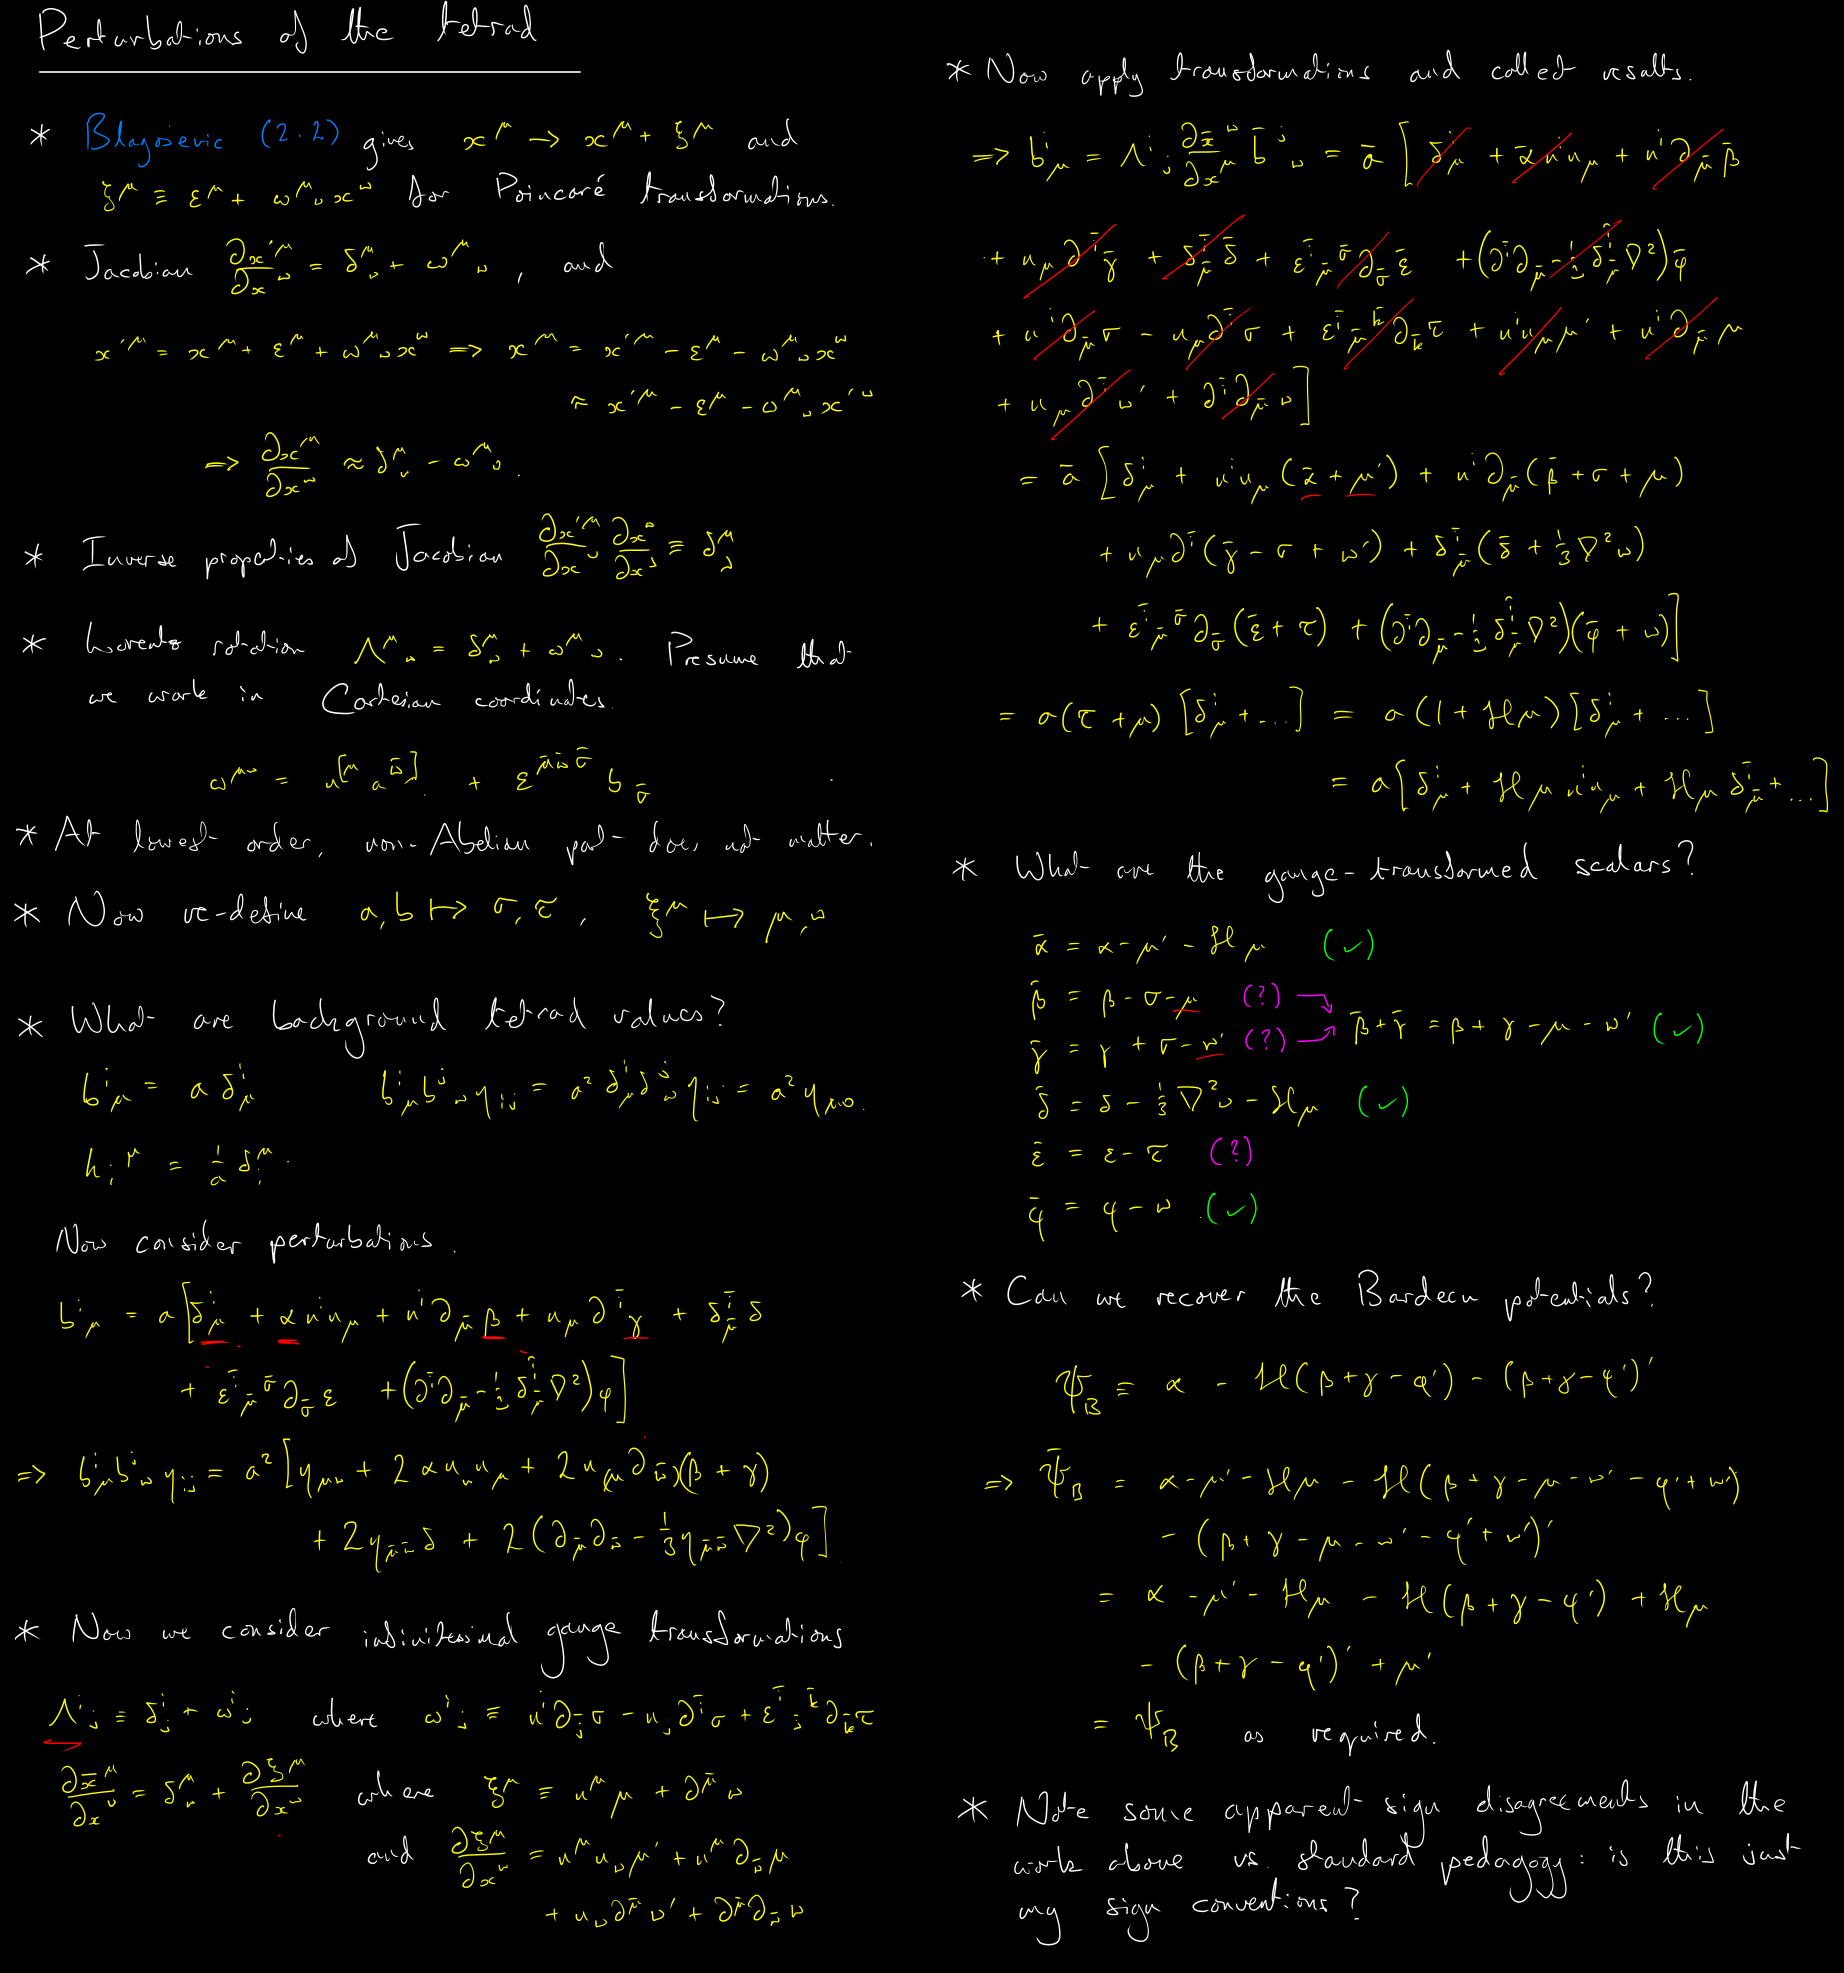 Perturbations of the tetrad
* Blagojevic (2.2) gives x^μ → x^μ + ξ^μ and
ξ^μ ≡ ε^μ + ω^μ_ν x^ν for Poincaré transformations.
* Jacobian ∂x'^μ/∂x^ν = δ^μ_ν + ω^μ_ν , and
x'^μ = x^μ + ε^μ + ω^μ_ν x^ν => x^μ = x'^μ - ε^μ - ω^μ_ν x^ν
≈ x'^μ - ε^μ - ω^μ_ν x'^ν
=> ∂x'^μ/∂x^ν ≈ δ^μ_ν - ω^μ_ν .
* Inverse properties of Jacobian ∂x'^μ/∂x^ν ∂x^ν/∂x'^σ ≡ δ^μ_σ
* Lorentz rotation Λ^μ_ν = δ^μ_ν + ω^μ_ν . Presume that
we work in Cartesian coordinates.
ω^{μν} = u^{[μ} a^{ν̄]} + ε^{μ̄ν̄σ̄} b_σ̄
* At lowest order, non-Abelian part does not matter.
* Now re-define a, b ↦ σ, τ , ξ^μ ↦ μ, ν
* What are background tetrad values?
b^i_μ = a δ^i_μ b^i_μ b^j_ν η_ij = a² δ^i_μ δ^j_ν η_ij = a² η_μν .
h_i^μ = 1/a δ_i^μ .
Now consider perturbations.
b^i_μ = a [ δ^i_μ + α n^i n_μ + n^i ∂_μ̄ β + n_μ ∂^ī γ + δ^ī_μ̄ δ
+ ε^ī_μ̄^σ̄ ∂_σ̄ ε + (∂^ī ∂_μ̄ - 1/3 δ^ī_μ̄ ∇²) φ ]
=> b^i_μ b^j_ν η_ij = a² [ η_μν + 2 α n_ν n_μ + 2 n_(μ ∂_ν̄) (β + γ)
+ 2 η_μ̄ν̄ δ + 2 (∂_μ̄ ∂_ν̄ - 1/3 η_μ̄ν̄ ∇²) φ ]
* Now we consider infinitesimal gauge transformations
Λ^i_j ≡ δ^i_j + ω^i_j where ω^i_j ≡ n^i ∂_j̄ σ - n_j ∂^ī σ + ε^ī_j̄^k̄ ∂_k̄ τ
∂x̄^μ/∂x^ν = δ^μ_ν + ∂ξ^μ/∂x^ν where ξ^μ ≡ n^μ μ + ∂^μ̄ ν
and ∂ξ^μ/∂x^ν = n^μ n_ν μ' + n^μ ∂_ν̄ μ
+ n_ν ∂^μ̄ ν' + ∂^μ̄ ∂_ν̄ ν
* Now apply transformations and collect results.
=> b^i_μ = Λ^i_j ∂x̄^ν/∂x^μ b̄^j_ν = ā [ δ^i_μ + ᾱ n^i n_μ + n^i ∂_μ̄ β̄
+ n_μ ∂^ī γ̄ + δ^ī_μ̄ δ̄ + ε^ī_μ̄^σ̄ ∂_σ̄ ε̄ + (∂^ī ∂_μ̄ - 1/3 δ^ī_μ̄ ∇²) φ̄
+ n^i ∂_μ̄ σ - n_μ ∂^ī σ + ε^ī_μ̄^k̄ ∂_k̄ τ + n^i n_μ μ' + n^i ∂_μ̄ μ
+ n_μ ∂^ī ν' + ∂^ī ∂_μ̄ ν ]
= ā [ δ^i_μ + n^i n_μ (ᾱ + μ') + n^i ∂_μ̄ (β̄ + σ + μ)
+ n_μ ∂^ī (γ̄ - σ + ν') + δ^ī_μ̄ (δ̄ + 1/3 ∇² ν)
+ ε^ī_μ̄^σ̄ ∂_σ̄ (ε̄ + τ) + (∂^ī ∂_μ̄ - 1/3 δ^ī_μ̄ ∇²)(φ̄ + ν) ]
= a(τ + μ) [ δ^i_μ + ... ] = a (1 + ℋμ) [ δ^i_μ + ... ]
= a [ δ^i_μ + ℋμ n^i n_μ + ℋμ δ^ī_μ̄ + ... ]
* What are the gauge-transformed scalars?
ᾱ = α - μ' - ℋμ (✓)
β̄ = β - σ - μ (?)
γ̄ = γ + σ - ν' (?)
β̄ + γ̄ = β + γ - μ - ν' (✓)
δ̄ = δ - 1/3 ∇² ν - ℋμ (✓)
ε̄ = ε - τ (?)
φ̄ = φ - ν (✓)
* Can we recover the Bardeen potentials?
Ψ_B ≡ α - ℋ(β + γ - φ') - (β + γ - φ')'
=> Ψ̄_B = α - μ' - ℋμ - ℋ(β + γ - μ - ν' - φ' + ν')
- (β + γ - μ - ν' - φ' + ν')'
= α - μ' - ℋμ - ℋ(β + γ - φ') + ℋμ
- (β + γ - φ')' + μ'
= Ψ_B as required.
* Note some apparent sign disagreements in the
work above vs. standard pedagogy: is this just
my sign conventions?